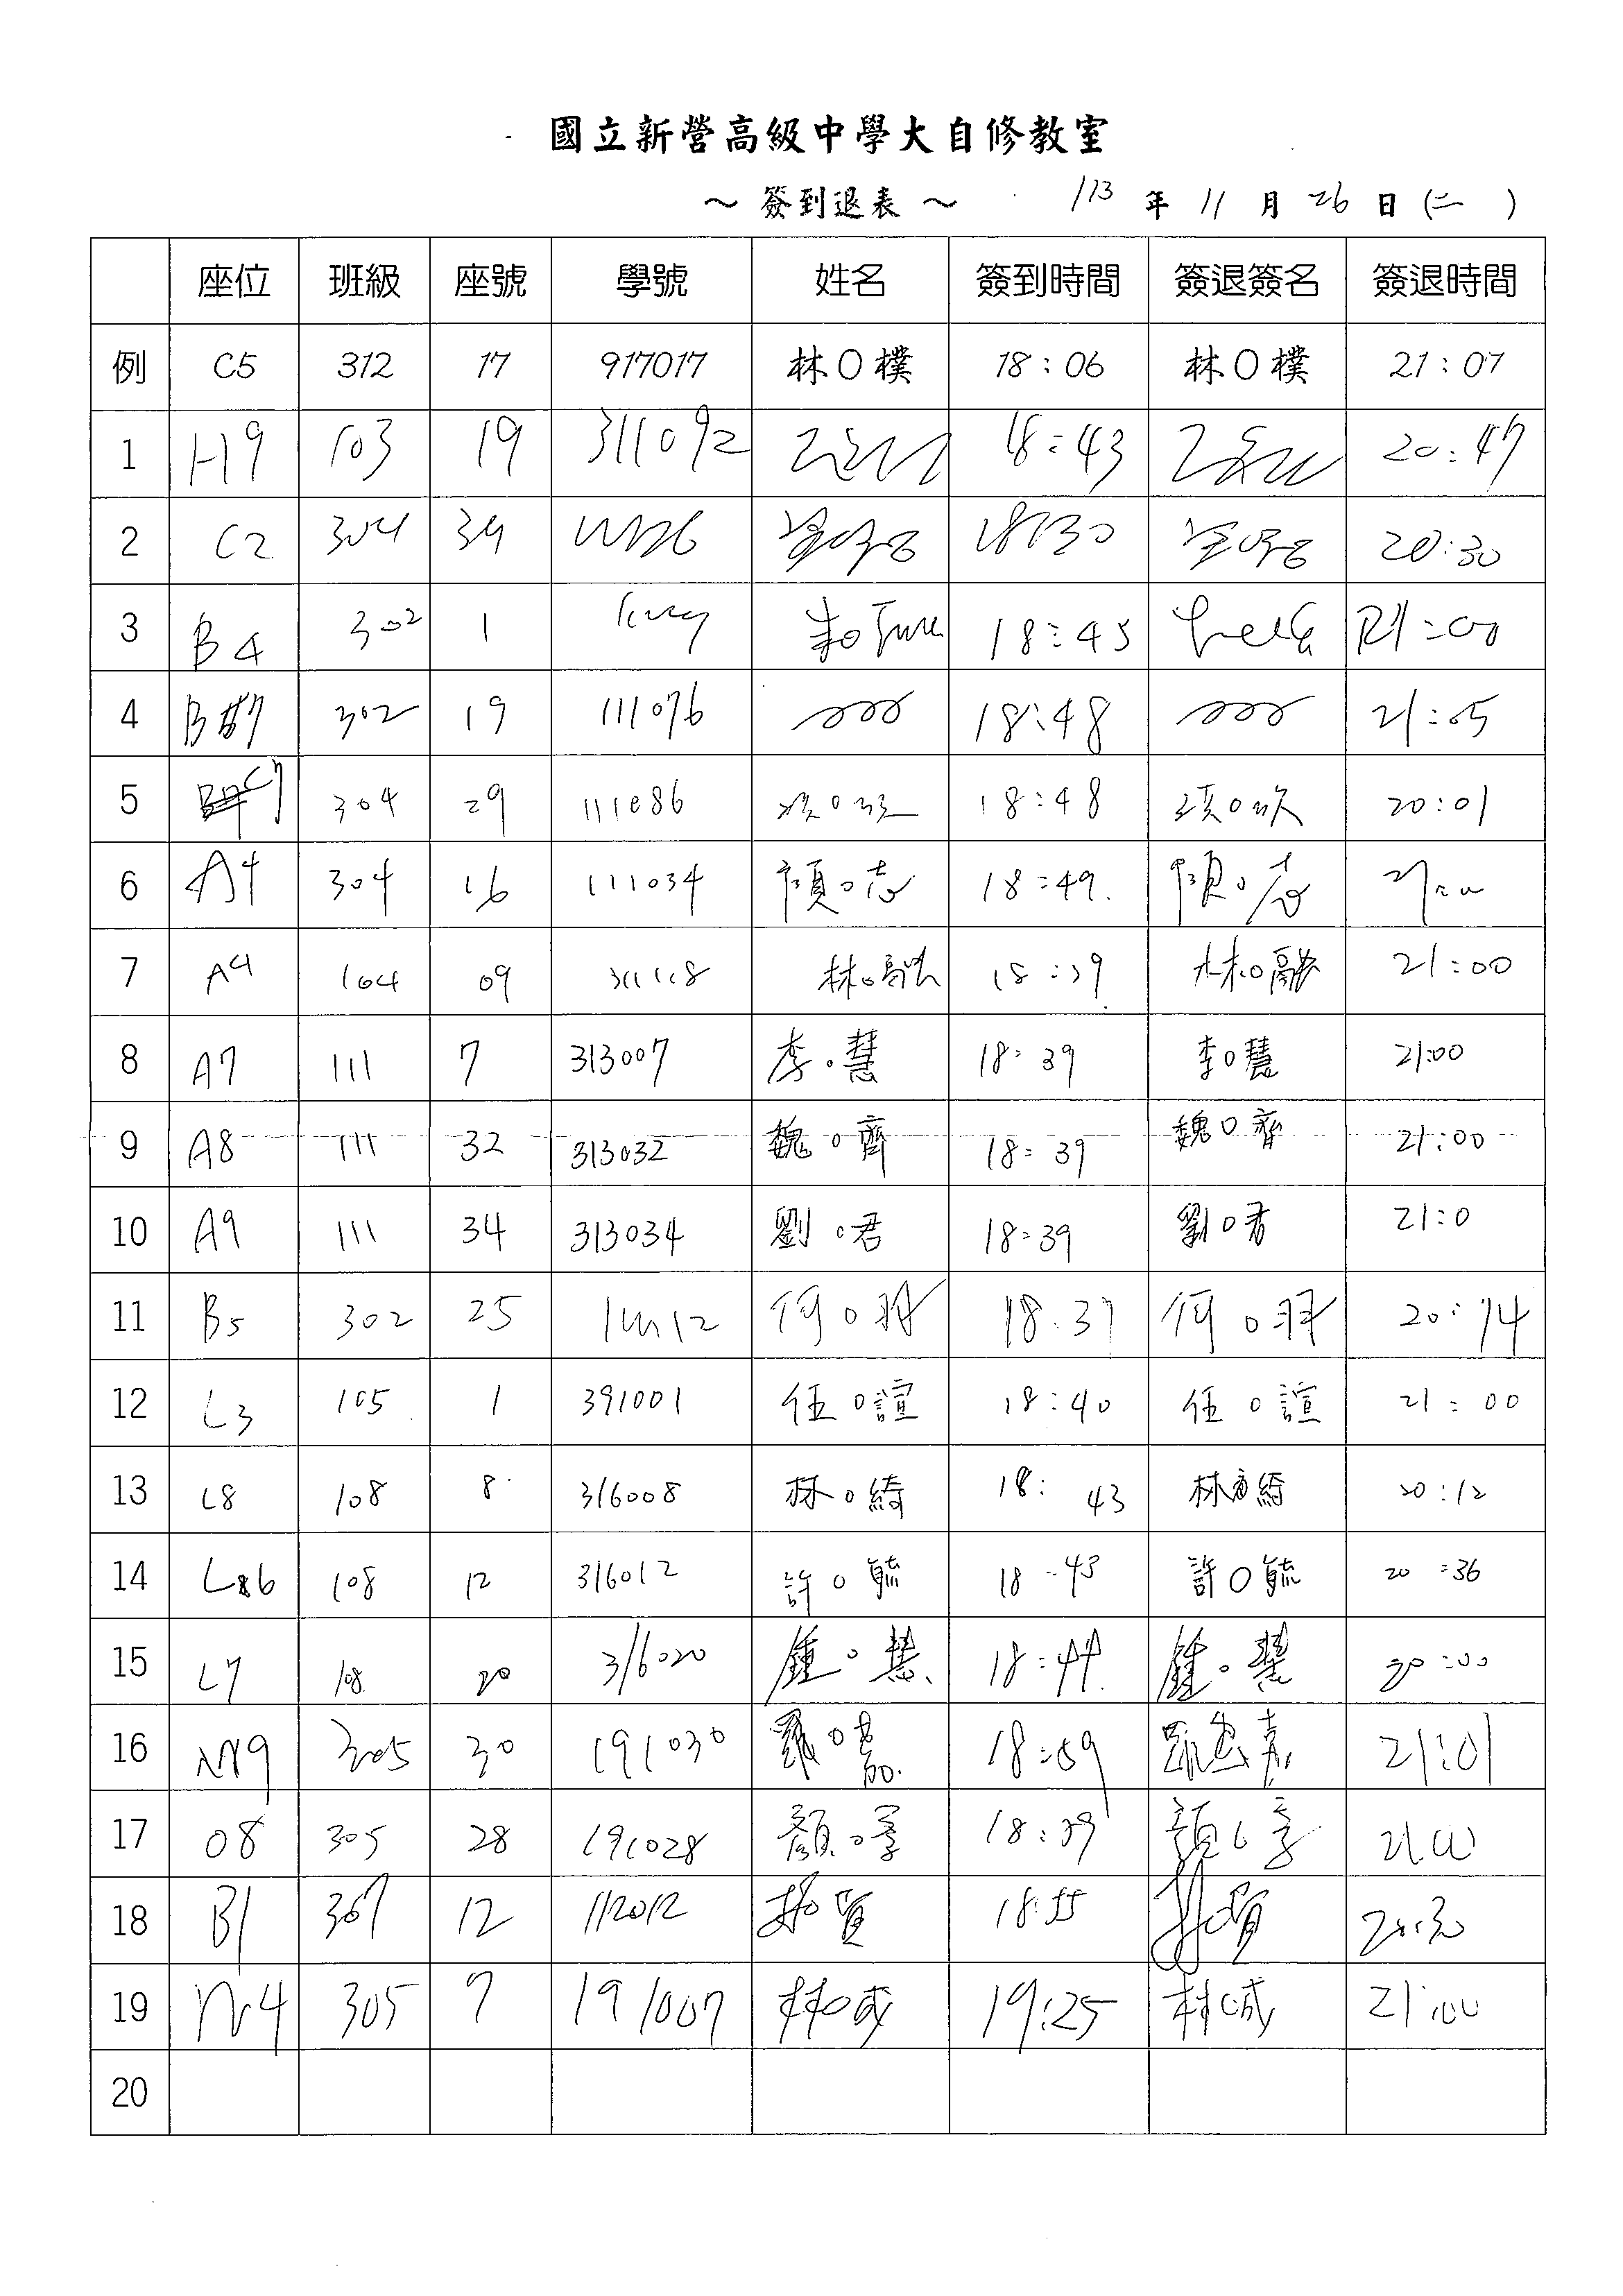 國立新營高級中學大自修教室
～ 簽到退表 ～ 113 年 11 月 26 日 (二 )
座位 班級 座號 學號 姓名 簽到時間 簽退簽名 簽退時間
例 C5 312 17 917017 林O樸 18:06 林O樸 21:07
1 H9 103 19 311092 18:43 20:47
2 C2 304 34 18:30 20:30
3 B4 302 1 18:45
4 302 19 111076 18:48 21:05
5 C7 304 29 111086 18:48 20:01
6 A4 304 16 111034 顏O志 18:49 顏O志
7 A4 104 09 311118 林O融 18:39 林O融 21:00
8 A7 111 7 313007 李O慧 18:39 李O慧 21:00
9 A8 111 32 313032 魏O齊 18:39 魏O齊 21:00
10 A9 111 34 313034 劉O君 18:39 劉O君 21:0
11 B5 302 25 何O羽 18:37 何O羽
12 L3 105 1 391001 任O諠 18:40 任O諠 21:00
13 L8 108 8 316008 林O綺 18:43 綺 20:12
14 108 12 316012 許O毓 18:43 許O毓 20:36
15 L7 108 20 316020 鍾O慧 18:44 鍾O慧 20:00
16 305 30 191030 18:59 21:01
17 O8 305 28 191028 顏O 18:39 顏O
18 B1 307 12 112012 18:55 20:30
19 N4 305 7 191007 林O成 19:25 21:00
20